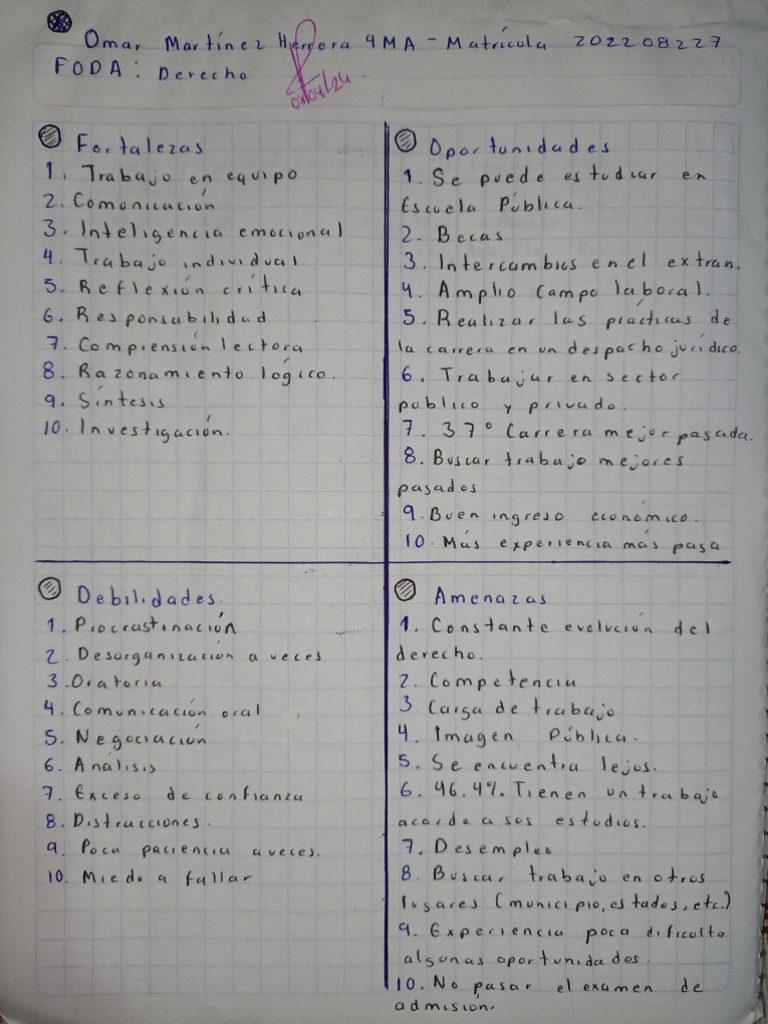 Omar Martínez Herrera 4MA - Matrícula 202208227
FODA: Derecho
08/04/24
Fortalezas
1. Trabajo en equipo
2. Comunicación
3. Inteligencia emocional
4. Trabajo individual
5. Reflexión crítica
6. Responsabilidad
7. Comprensión lectora
8. Razonamiento lógico.
9. Síntesis
10. Investigación.
Oportunidades
1. Se puede estudiar en
Escuela Pública.
2. Becas
3. Intercambios en el extran.
4. Amplio Campo laboral.
5. Realizar las prácticas de
la carrera en un despacho jurídico.
6. Trabajar en sector
público y privado.
7. 37° Carrera mejor pagada.
8. Buscar trabajo mejores
pagados
9. Buen ingreso económico.
10. Más experiencia más paga
Debilidades
1. Procrastinación
2. Desorganización a veces
3. Oratoria
4. Comunicación oral
5. Negociación
6. Análisis
7. Exceso de confianza
8. Distracciones.
9. Poca paciencia a veces.
10. Miedo a fallar
Amenazas
1. Constante evolución del
derecho.
2. Competencia
3. Carga de trabajo
4. Imagen Pública.
5. Se encuentra lejos.
6. 46.4% Tienen un trabajo
acorde a sus estudios.
7. Desempleo
8. Buscar trabajo en otros
lugares (municipio, estados, etc.)
9. Experiencia poca dificulta
algunas oportunidades.
10. No pasar el examen de
admisión.